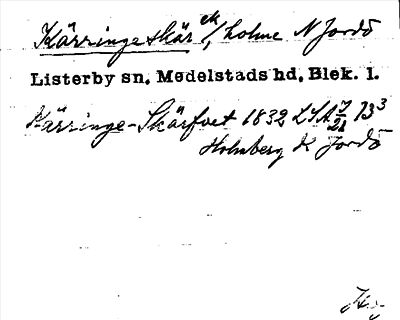 Kärringeskär ek/, holme N Jordö
Listerby sn. Medelstads hd, Blek. l.
Kärringe-Skärfvet 1832 LSA 7/21 13³
Holmberg K Jordö